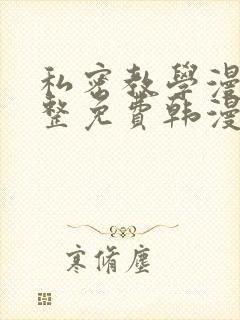 私密教學漫
整免費韩漫
寒脩塵